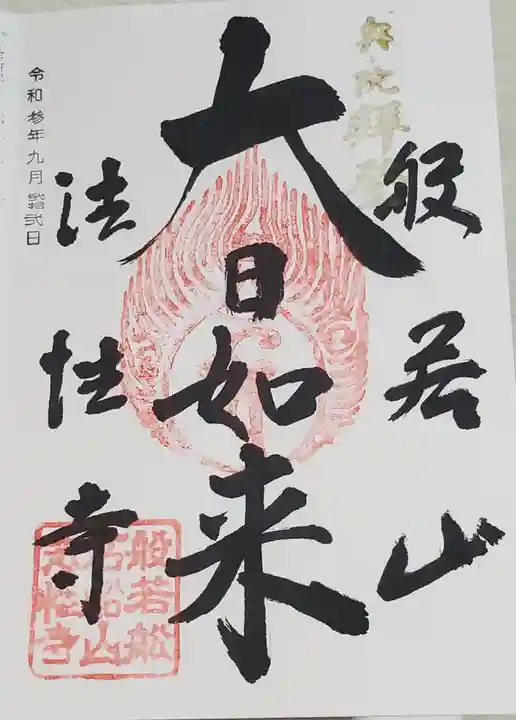 奥之院拝登
般若山
大日如来
法性寺
令和参年九月弐拾弐日
般若船
石船山
法性寺